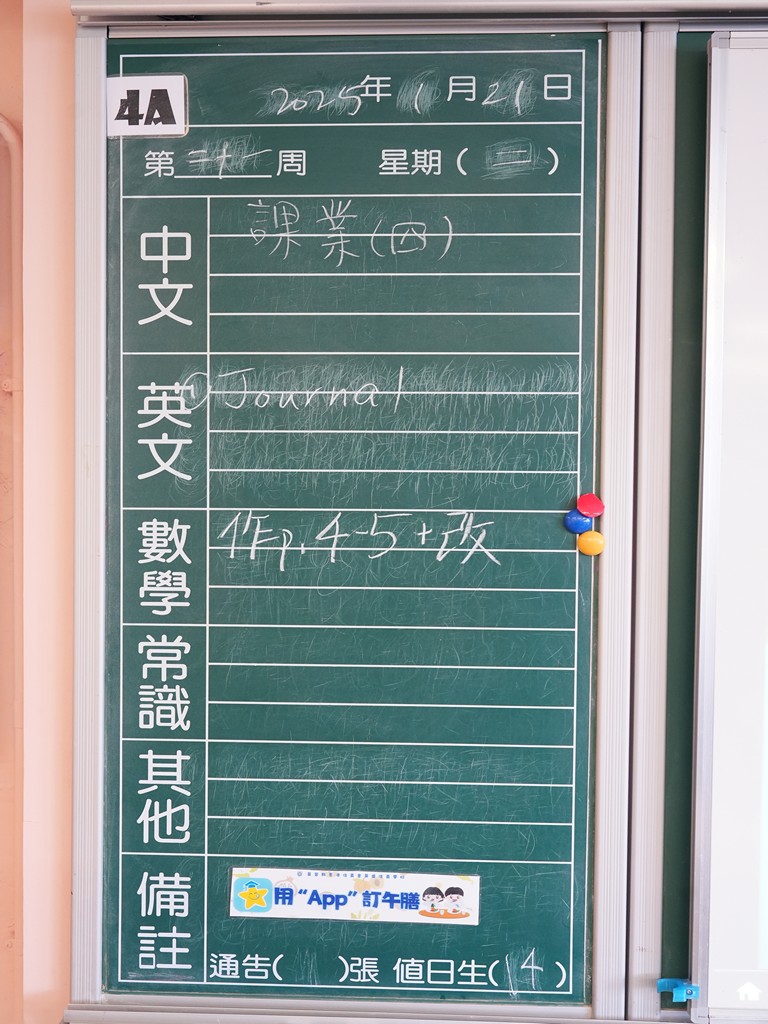 4A
2025年1月21日
第二十一周 星期(二)
中文
課業(四)
英文
① Journal
數學
作p.4-5+改
常識
其他
備註
用“App”訂午膳
通告( )張 值日生(14)